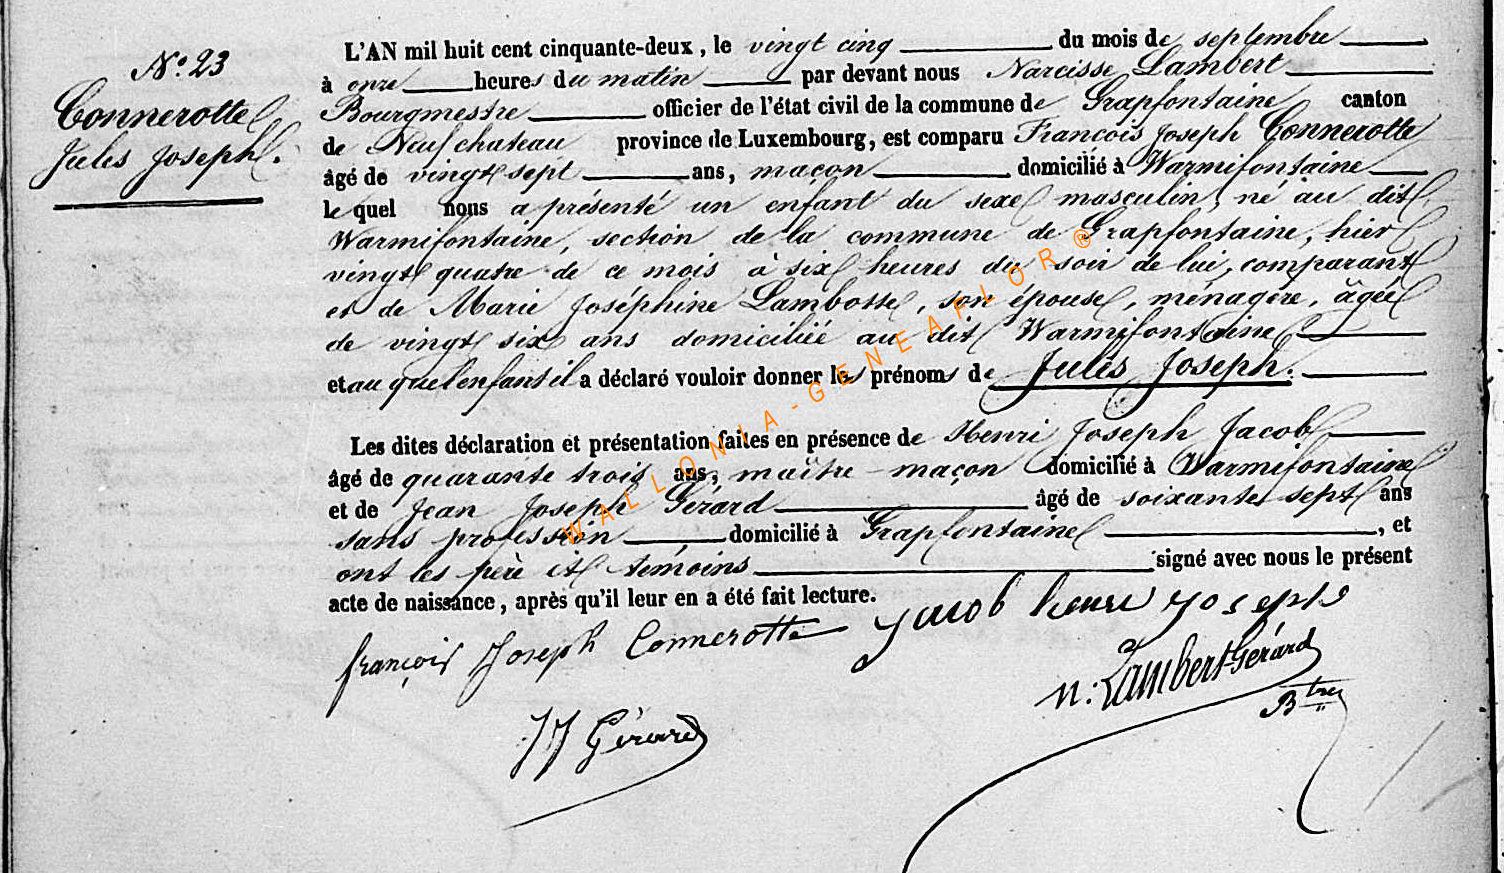 N° 23
Connerotte
Jules Joseph.
L'AN mil huit cent cinquante-deux, le vingt cinq du mois de septembre
à onze heures du matin par devant nous Narcisse Lambert
Bourgmestre officier de l'état civil de la commune de Grapfontaine canton
de Neufchateau province de Luxembourg, est comparu François Joseph Connerotte
âgé de vingt sept ans, maçon domicilié à Warmifontaine
le quel nous a présenté un enfant du sexe masculin, né au dit
Warmifontaine, section de la commune de Grapfontaine, hier
vingt quatre de ce mois à six heures du soir de lui, comparant
et de Marie Joséphine Lambotte, son épouse, ménagère, âgée
de vingt six ans domiciliée au dit Warmifontaine
et au quel enfant il a déclaré vouloir donner les prénoms de Jules Joseph.
Les dites déclaration et présentation faites en présence de Henri Joseph Jacob
âgé de quarante trois ans, maître-maçon domicilié à Warmifontaine
et de Jean Joseph Gérard âgé de soixante sept ans
sans profession domicilié à Grapfontaine, et
ont les père et témoins signé avec nous le présent
acte de naissance, après qu'il leur en a été fait lecture.
françois Joseph Connerotte jacob henri joseph
JJ Gérard
N. Lambert-Gérard
Btre
WALLONIA-GENEAFLOR®